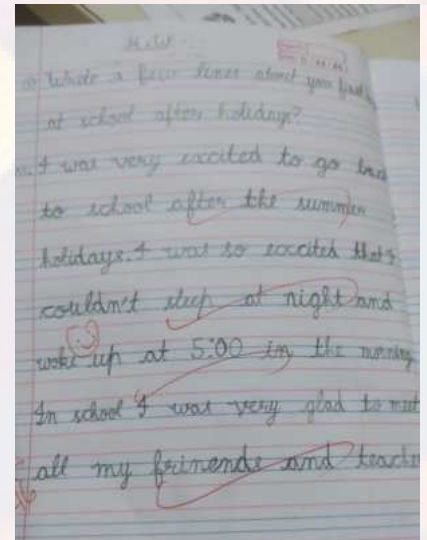 H.W
Write a few lines about you first
at school after holidays?
I was very excited to go
to school after the summer
holidays. I was so excited that
couldn't sleep at night and
woke up at 5:00 in the morning
In school I was very glad to meet
all my frinends and